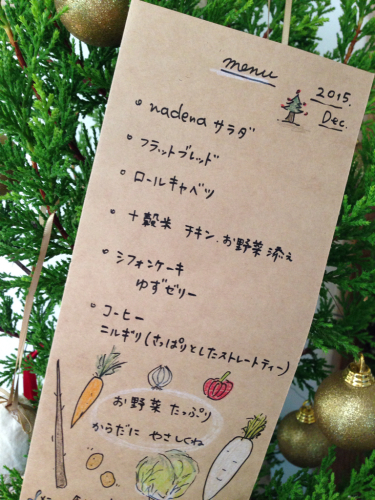 menu
2015.
Dec.
nadena サラダ
フラットブレッド
ロールキャベツ
十穀米 チキン、お野菜 添え
シフォンケーキ
ゆずゼリー
コーヒー
ニルギリ(さっぱりとしたストレートティー)
お野菜 たっぷり
からだに やさしくね